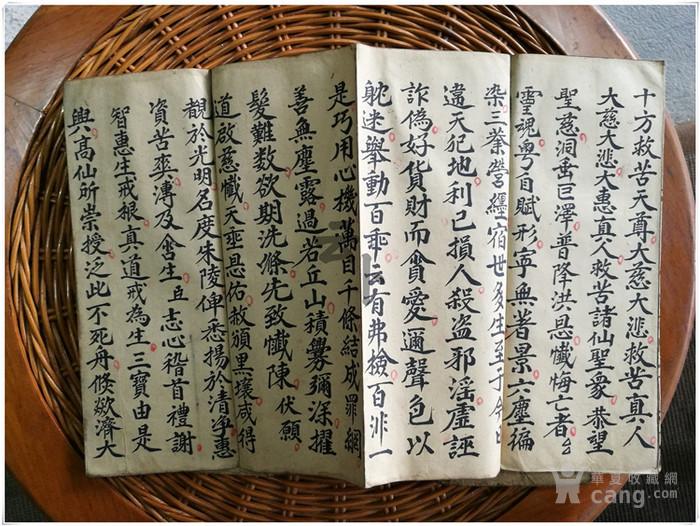 十方救苦天尊大慈大悲救苦真人
大慈大悲大惠真人救苦諸仙聖衆恭望
聖慈洞岳巨澤普降洪恩懺悔亡者
靈魂粤自賦形寧無著景六塵徧
染三業營纒宿世多生至于今日
違天犯地利己損人殺盜邪滛虛誣
詐偽好貨財而貪愛邇聲色以
躭迷舉動百乖有弗檢百非一
是巧用心機萬目千條結成罪網
善無塵露過若丘山積釁彌深擢
髮難数欲期洗滌先致懺陳伏願
道啟慈懺天乖恩佑赦頒黑壌咸得
覩於光明名度朱陵俾悉揚於清净惠
資苦爽溥及含生亙志心稽首禮謝
智惠生戒根真道戒為生三寶由是
興高仙所崇授泛此不死舟倐歘濟大
云长
華夏收藏網
cang.com